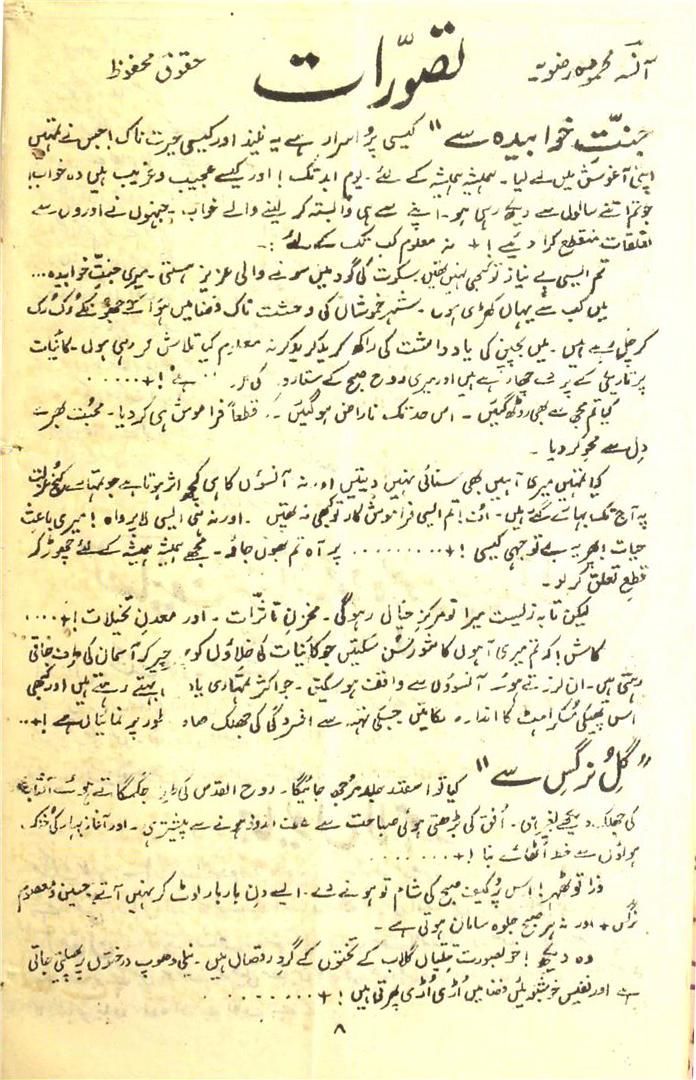 آنسہ محمودہ رضویہ
تصوّرات
حقوق محفوظ
جنتِ خوابیدہ سے" کیسی پُر اسرار ہے یہ نیند اور کیسی حیرت ناک! جس نے تمہیں
اپنی آغوش میں لے لیا۔ ہمیشہ ہمیشہ کے لئے۔ یوم ابد تک! اور کیسے عجیب و غریب ہیں وہ خواب!
جو تم اتنے سالوں سے دیکھ رہی ہو۔ اپنے سے ہی وابستہ کر لینے والے خواب۔ جنہوں نے اوروں سے
تعلقات منقطع کرا دیئے! + نہ معلوم کب تک کے لئے :۔
تم ایسی بے نیاز تو کبھی نہیں تھیں سکوت کی گود میں سونے والی عزیز ہستی۔ میری جنتِ خوابیدہ...
میں کب سے یہاں کھڑی ہوں۔ شہرِ خموشاں کی وحشت ناک فضا میں ہوا کے جھونکے رُک رُک
کر چل رہے ہیں۔ میں بچپن کی یادداشت کی راکھ کرید کرید کر نہ معلوم کیا تلاش کر رہی ہوں۔ کائنات
پر تاریکی کے پردے چھا رہے ہیں اور میری روح صبح کے ستارہ کی ہے! + .....
کیا تم مجھ سے بھی روٹھ گئیں۔ اس حد تک ناراض ہوگئیں۔ کہ قطعاً فراموش ہی کر دیا۔ محبت بھرے
دِل سے محو کر دیا۔
کیا تمہیں میری آہیں بھی سنائی نہیں دیتیں اور نہ آنسوؤں کا ہی کچھ اثر ہوتا ہے جو تمہارے کنج عزلت
پہ آج تک بہائے گئے ہیں۔ اُف! تم ایسی فراموش کار تو کبھی نہ تھیں۔ اور نہ ہی ایسی لاپرواہ! میری باعثِ
حیات! پھر یہ بے توجہی کیسی! + ......... پر آہ تم بھول جاؤ۔ مجھے ہمیشہ ہمیشہ کے لئے چھوڑ کر
قطع تعلق کر لو۔
لیکن تا بہ زلیست میرا تو مرکزِ خیال رہو گی۔ مخزنِ تاثرات۔ اور معدنِ تخیلات! + ....
کاش! کہ تم میری آہوں کا شور سُن سکتیں جو کائنات کی خلاؤں کو چیر کر آسمان کی طرف جاتی
رہتی ہیں۔ ان لرزتے ہوئے آنسوؤں سے واقف ہو سکتیں۔ جو اکثر تمہاری یاد بہتے رہتے ہیں اور کبھی
اس پھیکی مُسکراہٹ کا اندازہ لگاتیں جسکی تہہ سے افسردگی کی جھلک صاف طور پر نمایاں ہے! + ...
"گلِ نرگس سے" کیا تو اسقدر جلد مرجھا جائیگا۔ روح القدس کی طرح جگمگاتے ہوئے آفتاب
کی جھلک دیکھے بغیر ہی۔ اُفق کی بڑھتی ہوئی صباحت سے اندوز ہونے سے پیشتر ہی۔ اور آغاز بہار کی خنک
ہواؤں سے حظ اُٹھائے بنا! + ........
ذرا تو ٹھہر! اس پُر کیف صبح کی شام تو ہونے دے۔ ایسے دن بار بار لوٹ کر نہیں آتے حسین و معصوم
نرگس + اور نہ ہر صبح جلوہ سامان ہوتی ہے۔
وہ دیکھ! خوبصورت تیتلیاں گلاب کے تختوں کے گرد رقصاں ہیں۔ نیلی دھوپ درختوں پر پھیلتی جاتی
ہے اور نفیس خوشبوئیں فضا میں اُڑی اُڑی پھرتی ہیں! + ........
۸